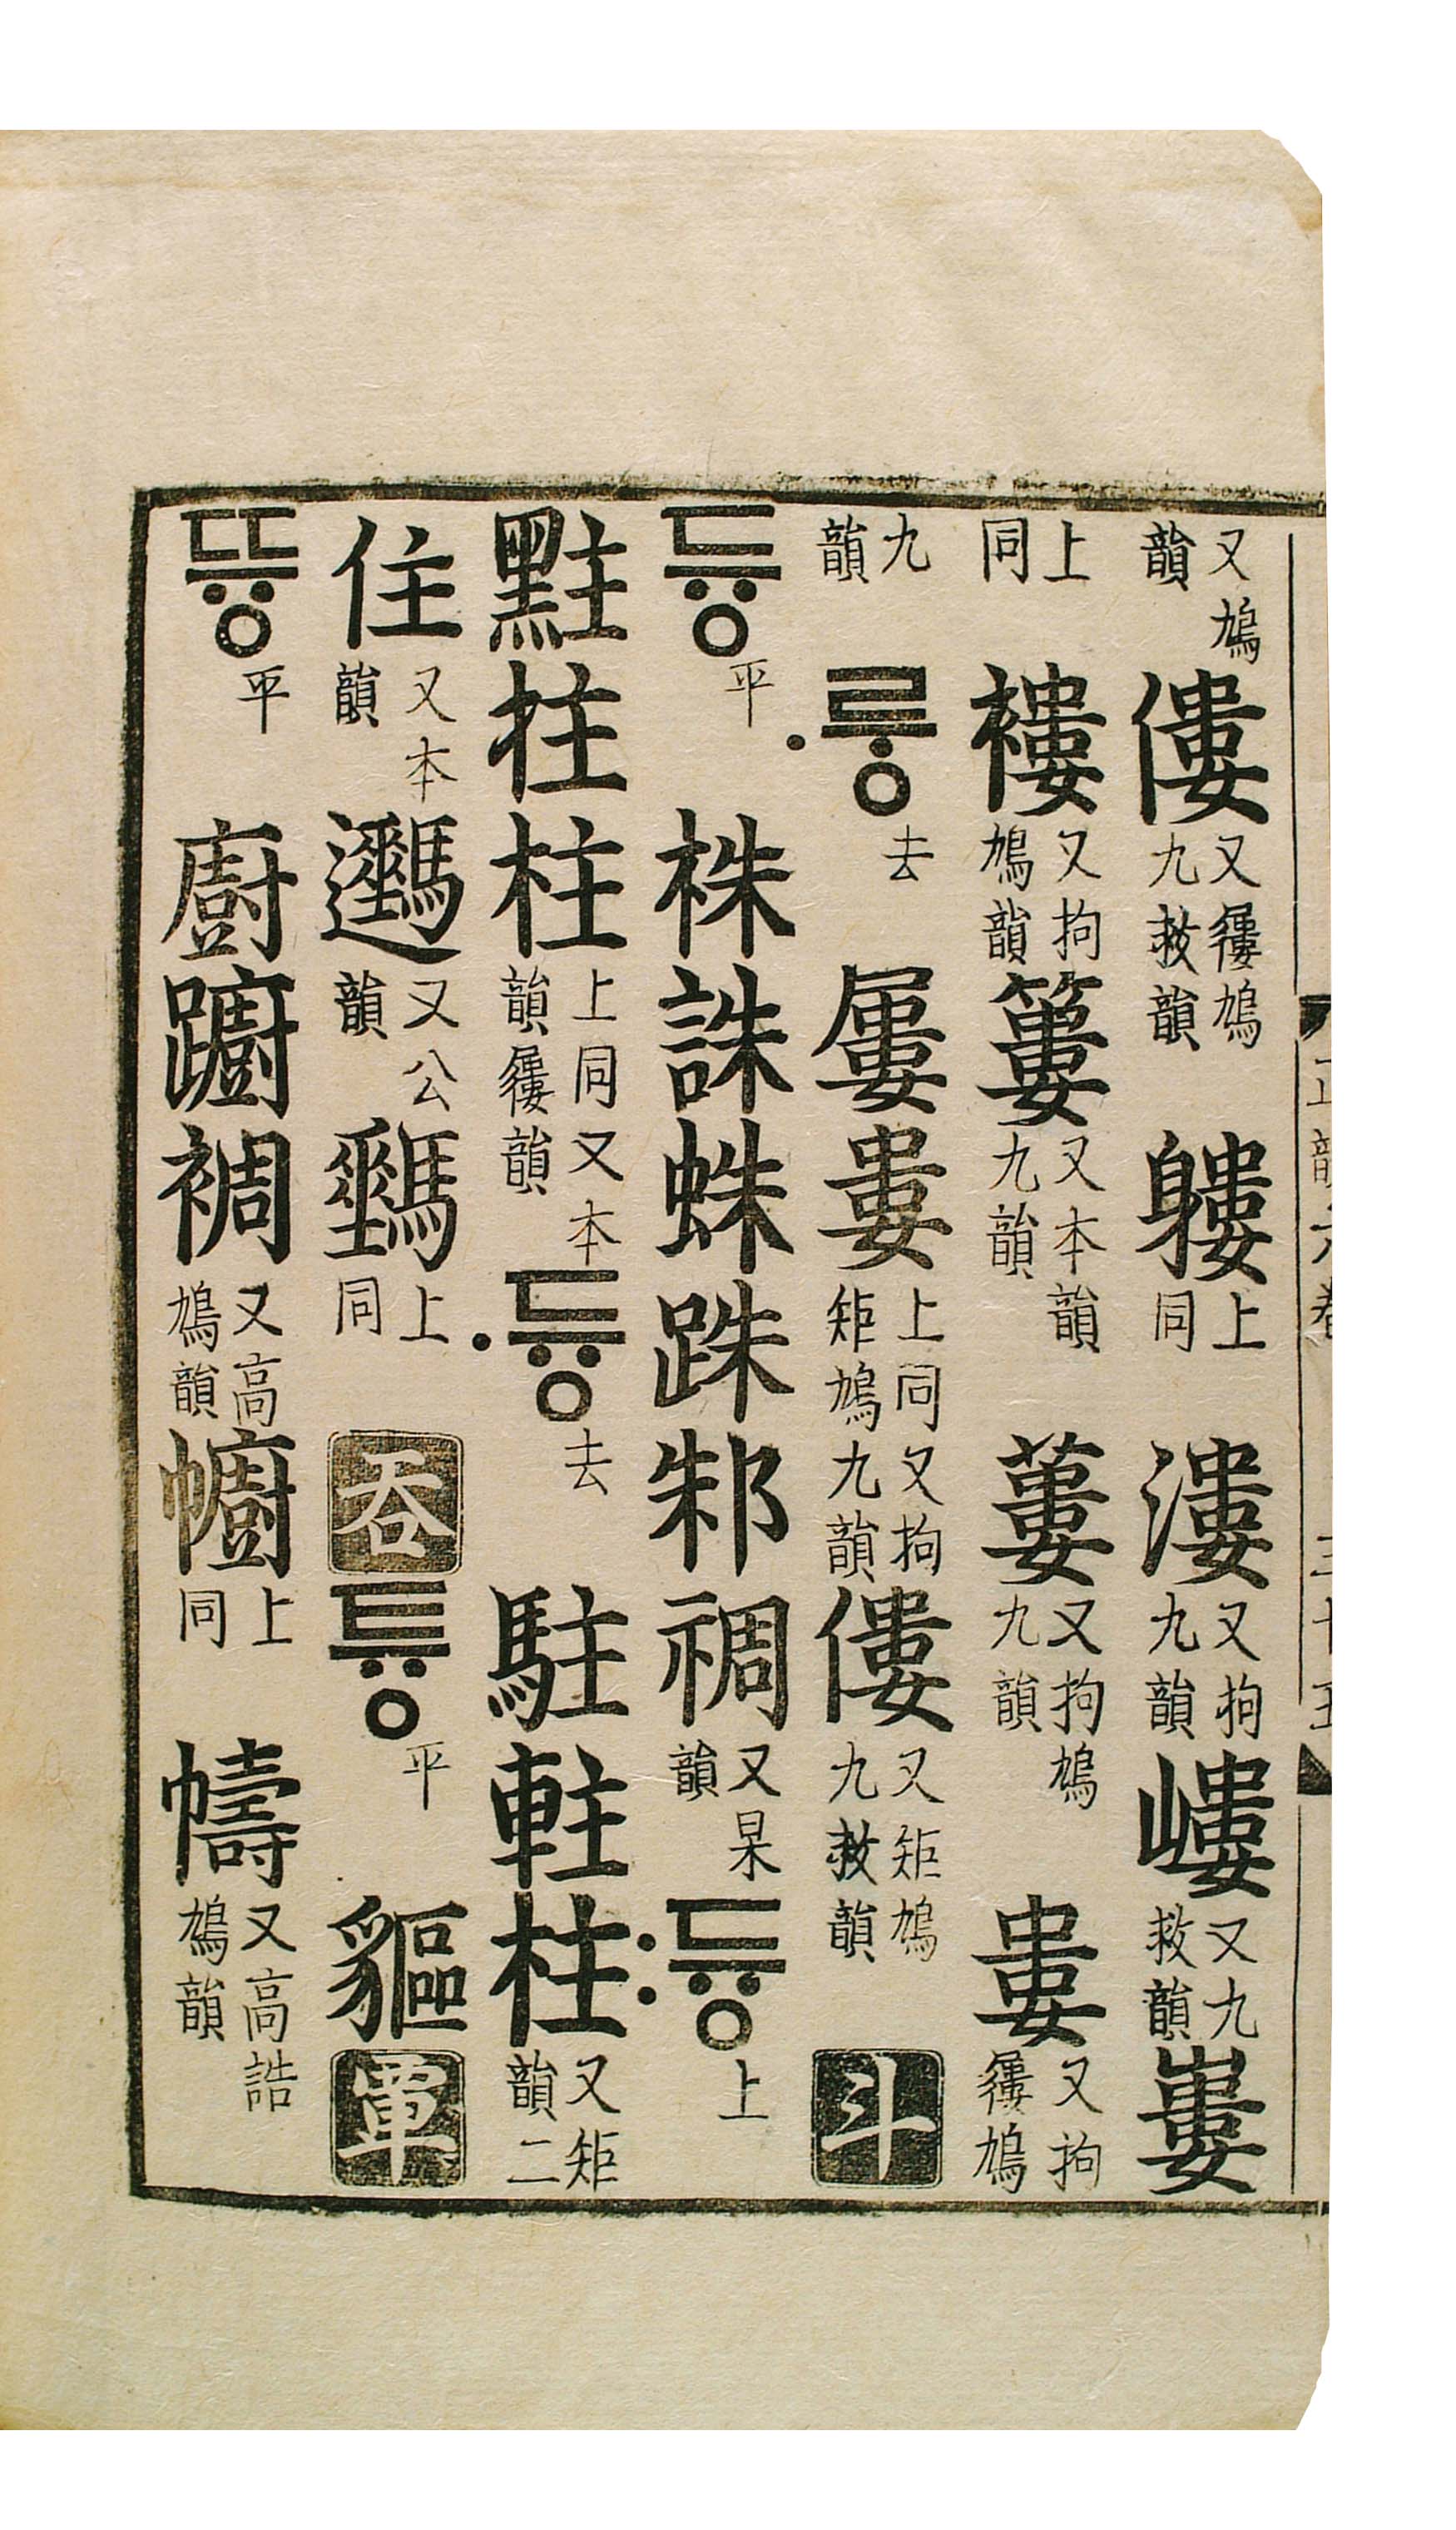 又鳩韻 僂 又屨鳩九救韻 軁 上同 漊 又拘九韻 嶁 又九救韻
上同 褸 又拘鳩韻 簍 又本韻九韻 蔞 又拘鳩九韻 婁 又拘屨鳩
九韻 ·룽 去 屢 婁 上同又拘矩鳩九韻 僂 又矩鳩九救韻 斗
듕 平 株 誅 蛛 跦 邾 禂 又杲韻 :듕 上
拄 柱 上同又本韻屨韻 ·듕 去 駐 軴 柱 又矩韻二
住 又本韻 又公韻 上同 呑 튱 平 貙 覃
뜡 平 廚 躕 裯 又高鳩韻 幮 上同 幬 又高誥鳩韻